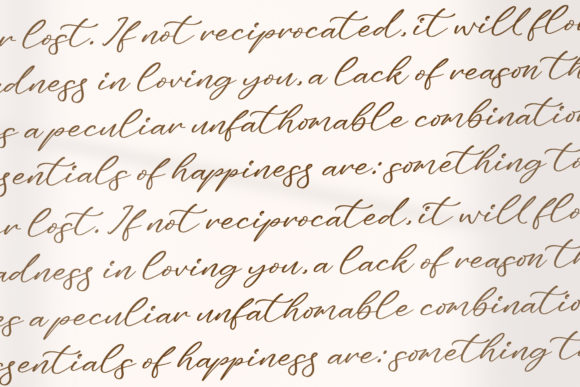 r lost. If not reciprocated, it will flo
dness in loving you, a lack of reason th
s a peculiar unfathomable combination
sentials of happiness are: something to
r lost. If not reciprocated, it will flo
adness in loving you, a lack of reason th
es a peculiar unfathomable combinatio
ssentials of happiness are: something to